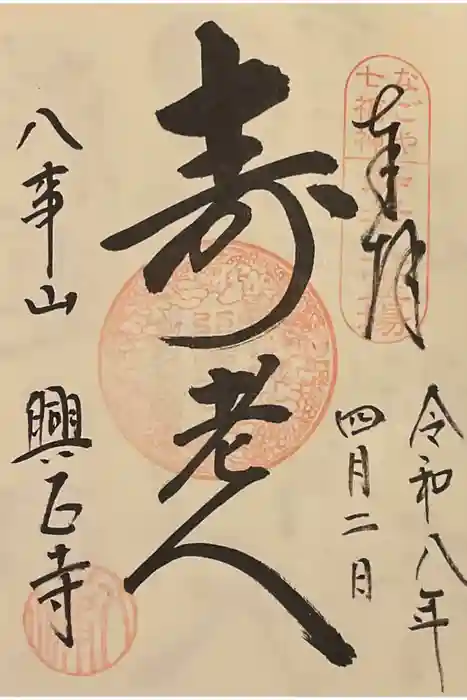 奉拝
令和八年
四月二日
寿老人
八事山
興正寺
なごや
七福神